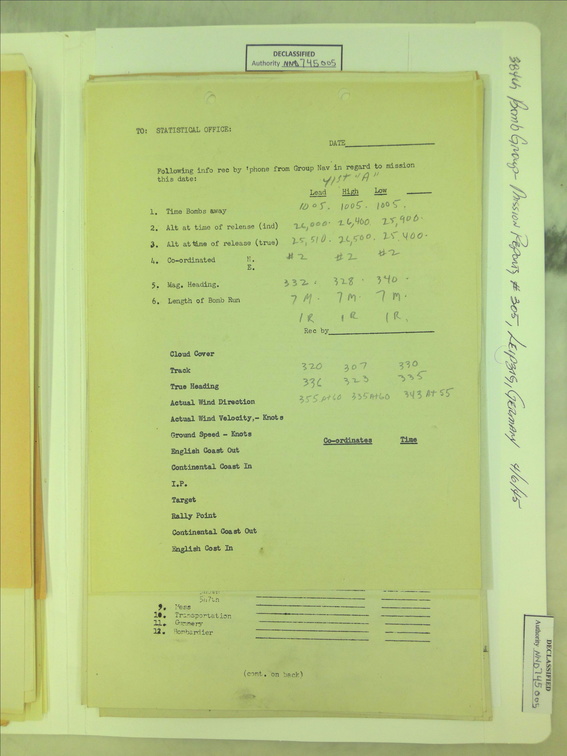 DECLASSIFIED
Authority NND 745005
TO: STATISTICAL OFFICE:
DATE
Following info rec by 'phone from Group Nav in regard to mission
this date:
41st "A"
Lead High Low
1. Time Bombs away 1005. 1005. 1005.
2. Alt at time of release (ind) 26,000. 26,400. 25,900.
3. Alt at time of release (true) 25,510. 26,500. 25,400.
4. Co-ordinated N. #2 #2 #2
E.
5. Mag. Heading. 332. 328. 340.
6. Length of Bomb Run 7 M. 7 M. 7 M.
1 R 1 R 1 R.
Rec by
Cloud Cover
Track 320 307 330
True Heading 336 323 335
Actual Wind Direction 355 At 60 335 At 60 343 AT 55
Actual Wind Velocity,- Knots
Ground Speed - Knots
Co-ordinates Time
English Coast Out
Continental Coast In
I.P.
Target
Rally Point
Continental Coast Out
English Cost In
9. Mess
10. Transportation
11. Gunnery
12. Bombardier
(cont. on back)
384th Bomb Group - Mission Report, # 305, Leipzig, Germany 4/6/45
DECLASSIFIED
Authority NND 745005